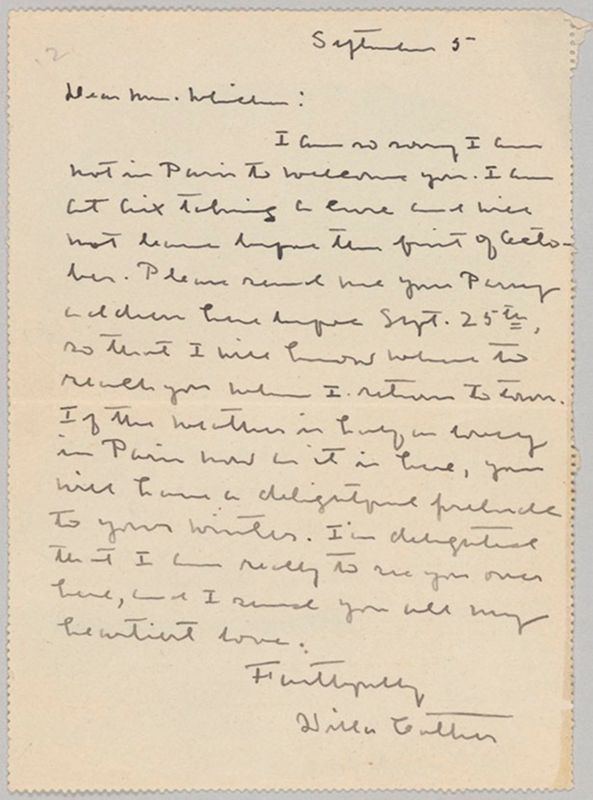 12
September 5
Dear Mr. Whicher:
I am so sorry I am
not in Paris to welcome you. I am
at Aix taking a cure and will
not leave before the first of Octo-
ber. Please send me your Paris
address here before Sept. 25th,
so that I will know where to
reach you when I return to town.
If the weather is half as lovely
in Paris now as it is here, you
will have a delightful prelude
to your winter. I'm delighted
that I am really to see you over
here, and I send you all my
heartiest love.
Faithfully
Willa Cather